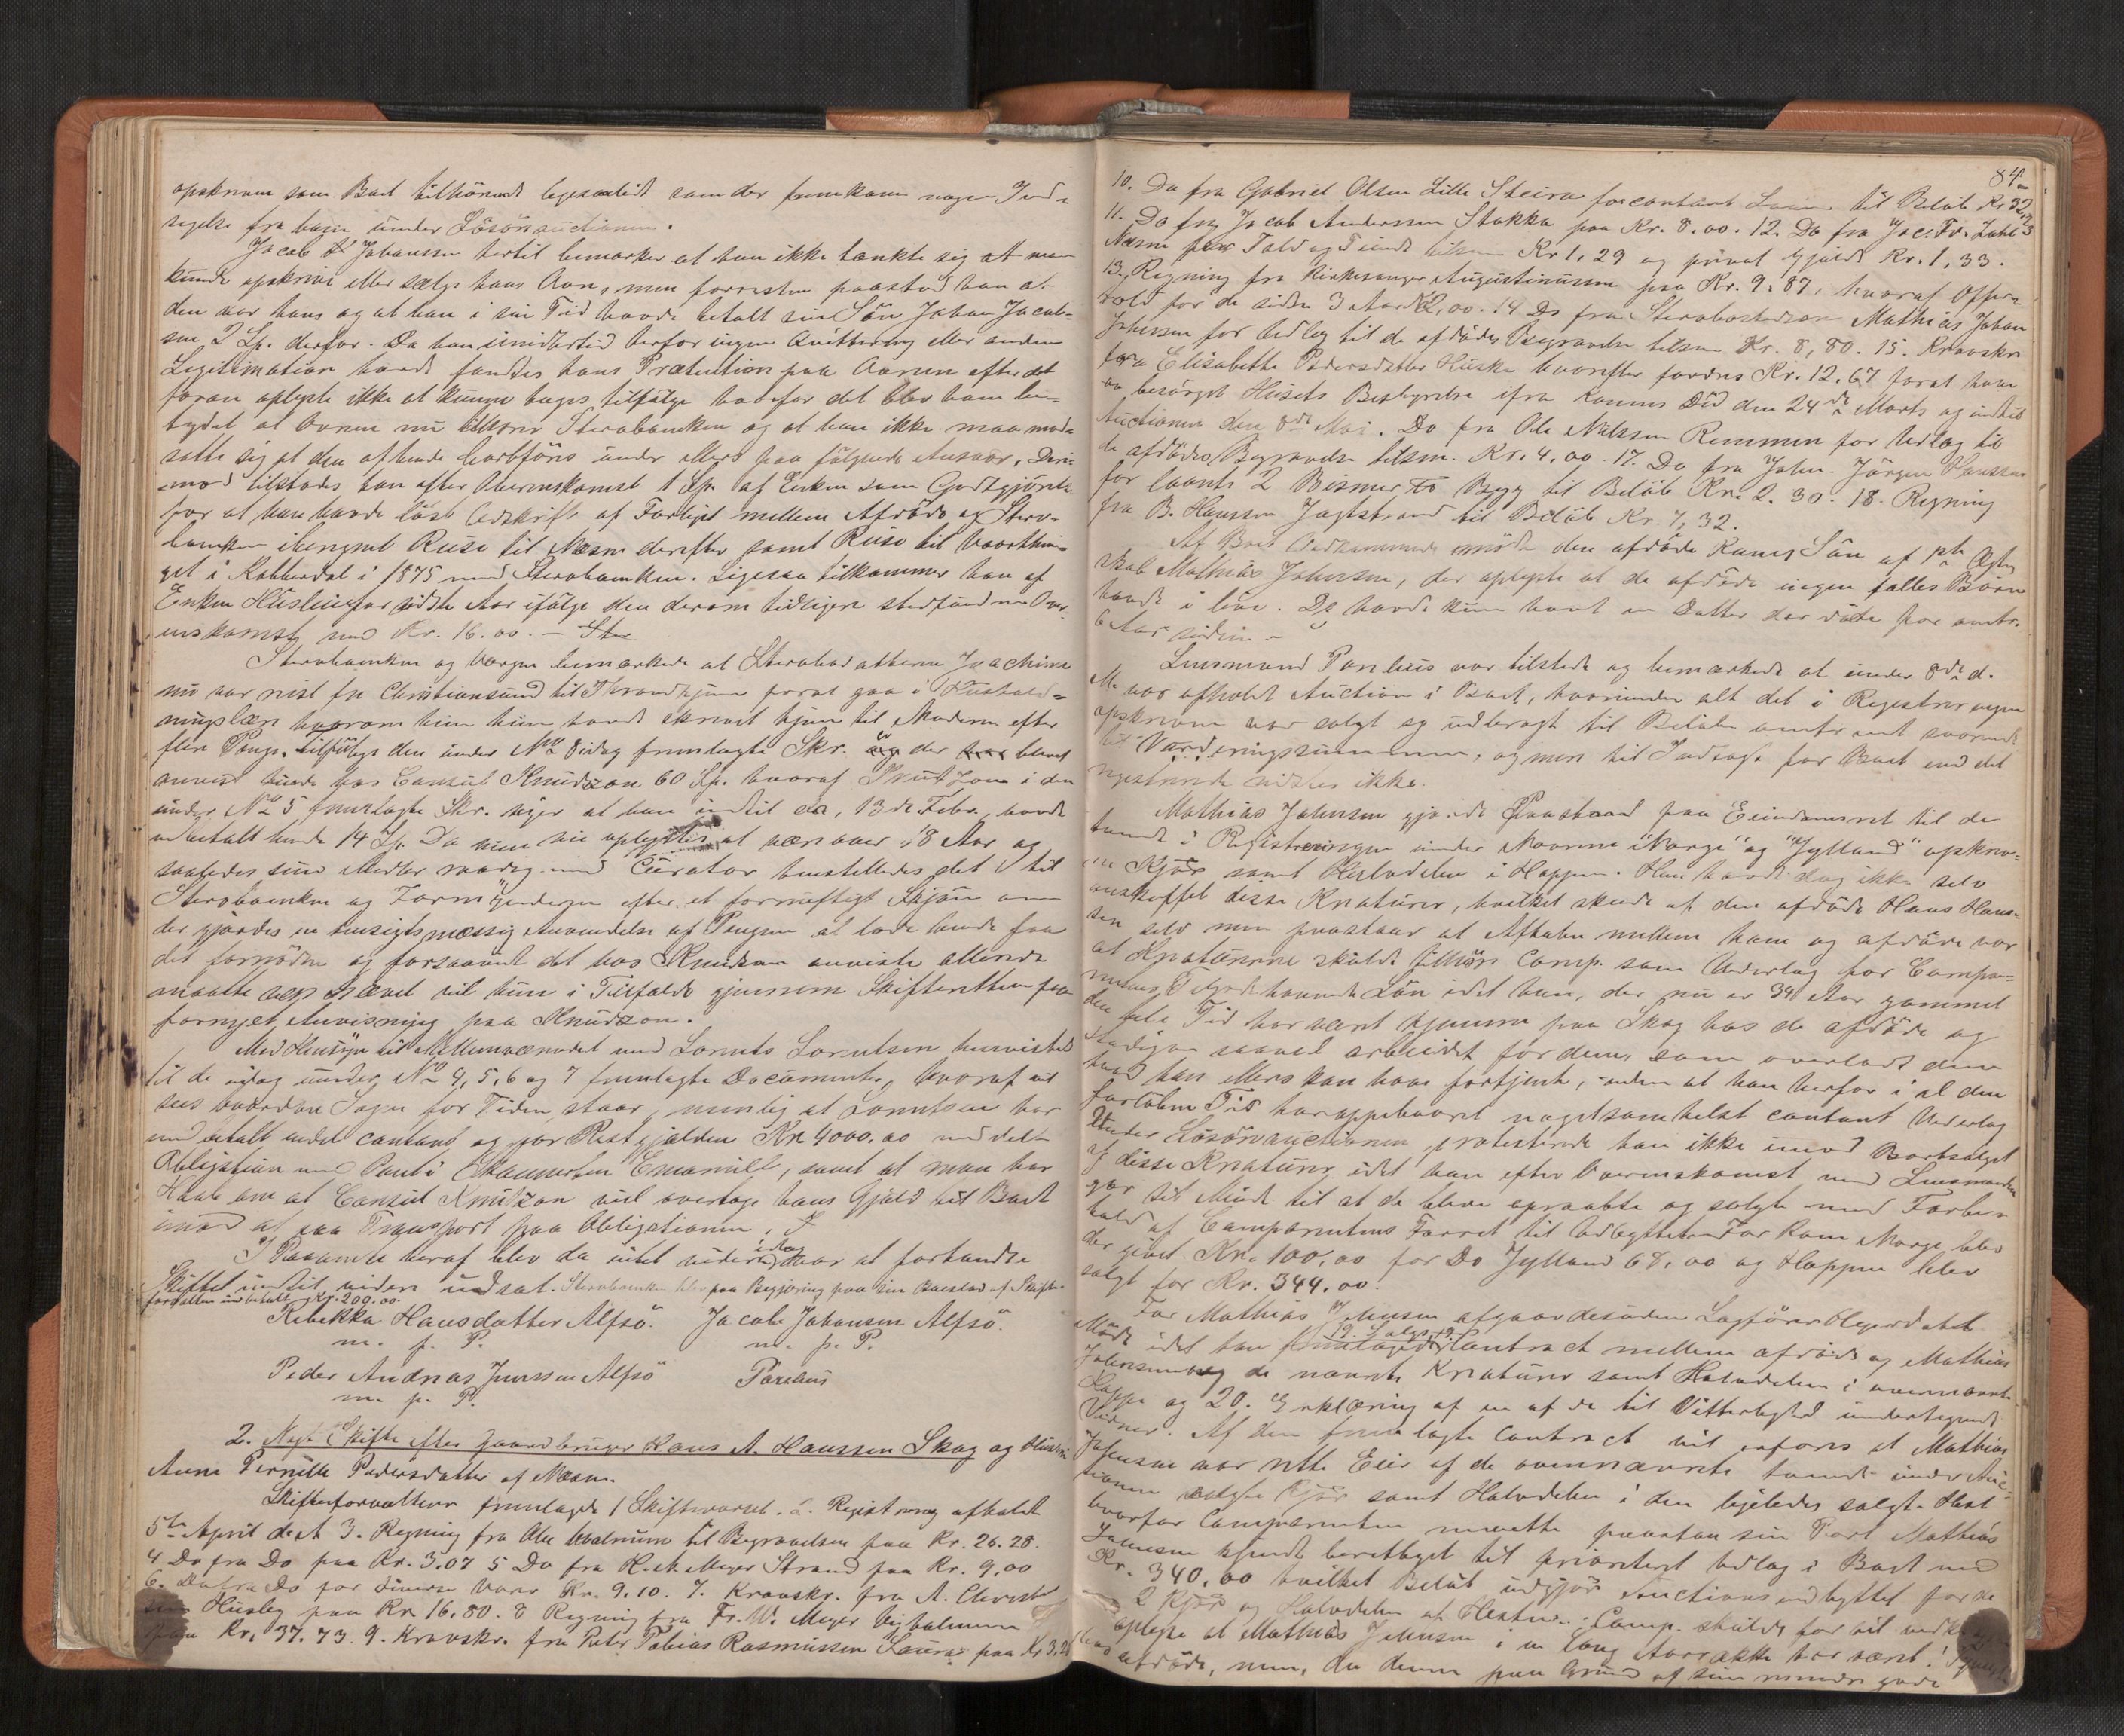 opskreven som Boet tilhörende ligesaalidt som der fremkom nogen Ind-
sigelse fra ham under Lösöreauctionen.
Jacob Johansen hertil bemærker at han ikke tænkte sig at man
kunde opskrive eller sælge hans Aovn, men forresten paastod han at
den var hans og at han i sin Tid havde betalt sin Sön Johan Jacob-
sen 2 Sp. derfor. Da han imidlertid herfor ingen Qvittering eller anden
Legitimation havde fandtes hans Prætention paa Aovnen efter det
foran oplyste ikke at kunne tages tilfölge hvorfor det blev ham be-
tydet at Ovnen nu tilhörer Sterboenken og at han ikke maa mod-
sætte sig at den af hende bortföres under Ansvar. Deri-
mod tilstodes han efter Overenskomst 1 Sp. af Enken som Godtgjörelse
for at han havde löst Udskrift af Forliget mellem Afdöde og Sterv-
boenken Reise til Næsne derefter samt Reise til Vaarthin-
get i Kobberdal i 1875 med Sterboenken. Ligesaa tilkommer han af
Enken Husleie for sidste Aar ifölge den derom tidligere stedfundne Over-
enskomst med Kr. 16.00. –
Sterboenken og Værgen bemærkede at Sterbodatteren Joachime
nu var reist fra Christiansund til Throndhjem forat gaa i Hushold-
ningslære hvorom hun havde skrevet hjem til Moderen efter
flere Penge. Ifölge den under No 8 idag fremlagte Skr. er der blevet
anvist hende hos Consul Knudtzon 60 Sp. hvoraf Knudtzon i den
under No 5 fremlagte Skr. siger at han indtil da, 13de Febr. havde
udbetalt hende 14 Sp. Da hun nu oplystes at være over 18 Aar og
saaledes sine Midler raadig med Curator henstilledes det til
Sterboenken og Formynderen efter et fornuftigt Skjön om
der gjordes en hensigtsmæssig Anvendelse af Pengene at lade hende faa
det fornödne og forsaavidt det hos Knudtzon anviste allerede
maatte være hævet vil hun i Tilfælde gjennem Skifteretten faa
fornyet Anvisning paa Knudtzon.
Med Hensyn til Mellemværendet med Lorents Lorntsen henvistes
til de idag under No 4, 5, 6 og 7 fremlagte Documenter, hvoraf vil
sees hvordan Sagen for Tiden staar, nemlig at Lorntsen har
udbetalt endel contant og for Restgjælden Kr. 4000.00 meddelt
Obligation med Pant i Skonnerten Emanuel, samt at man har
Haab om at Consul Knudtzon vil overtage hans Gjæld til Boet
imod at faa Transport paa Obligationen.
I Paavente heraf blev da intet videre idag var at forhandle
Skiftet indtil videre udsat. Sterboenken blev paa Begjæring paa sin Boeslod af Skifte-
forvalteren udbetalt Kr. 200.00.
Rebekka Hansdatter Alfsö. Jacob Johansen Alfsö.
m. p. P. m. p. P.
Peder Andreas Jensen Alfsö Parelius
m. p. P.
2. Skifte efter Gaardbruger Hans A. Hanssen Skog og Hustru
Anne Pernille Pedersdatter af Næsne.
Skifteforvalteren fremlagde 1 Skiftevarsel. 2. Registrering afholdt
5te April d. A. 3. Regning fra Ole til Begravelsen paa Kr. 26.28.
4 Do fra Do paa Kr. 3.07 5 Do fra H. Meyer Strand paa Kr. 9,00
6. Do fra Do for diverse Varer Kr. 9.10. 7. Kravskr. fra A. Christ-
Husby paa Kr. 16.80. 8 Regning fra Fr. W. Meyer
Kr. 37.73. 9. Kravskr. fra Peter Tobias Rasmussen paa Kr 3,
84.
10. Do fra Gabriel Olsen Lille Steira for contant Laan til Belöb Kr 32,
11. Do fra Jacob Andersen Stokka paa Kr. 8.00. 12. Do fra Jac. Fr. Zahl
Næsne paa Told og Tiende tilsm Kr 1,29 og privat Gjæld Kr. 1,33.
13. Regning fra Kirkesanger Augustinussen paa Kr. 9.87, hvoraf Offer-
told for de sidste 3 Aar 14 Do fra Sterbostedsön Mathias Johan
Johnsen for Udlæg til de afdödes Begravelse tilsm Kr. 8,80. 15. Kravskr.
fra Elisabethe Pedersdatter Huske hvorefter fordres Kr. 12.67 forat have
besörget Husets Bestyrelse ifra Konens Död den 24de Marts og indtil
Auctionen den 8de Mai. Do fra Ole Nilssen Remmen for Udlæg til
de afdödes Begravelse tilsm. Kr. 4,00. 17. Do fra John Jörgen Hanssen
for laante 2 Bismer Byg til Belöb Kr. 2.30. 18. Regning
fra B. Hanssen Jagtstrand til Belöb Kr. 7,32.
Af Boet Vedkommende mödte den afdöde Kones Sön af 1ste Ægte-
skab Mathias Johnsen, der oplyste at de afdöde ingen fælles Börn
havde i live. De havde kun havt en Datter der döde for omtr.
6 Aar siden. –
Lensmand Parelius var tilstede og bemærkede at under 8de d.
M. var afholdt Auction i Boet, hvorunder alt det i Registreringen
opskrevne var solgt og udbragt til Belöb omtrent svarende
til Vurderingssummen, og mere til Indtægt for Boet end det
registrerede vidstes ikke.
Mathias Johnsen gjorde Paastand paa Eiendomsret til de
tvende i Registreringen under Navnene "Norge" og "Jylland" opskrev-
ne Kjör samt Halvdelen i Hoppen. Han havde dog ikke selv
anskaffet disse Kreaturer, hvilket skede af den afdöde Hans Hans-
sen selv men paastaar at Aftalen mellem ham og afdöde var
at Kreaturerne skulde tilhöre Comp. som Vederlag for Compa-
rentens Tilgodehavende Lön idet han, der nu er 34 Aar gammel
den hele Tid har været hjemme paa Skog hos de afdöde og
stadigen saavel arbeidet for dem som overladt dem
hvad han ellers kan have fortjent, uden at han herfor i al den
forløbne Tid har oppebaaret nogetsomhelst contant Vederlag
Under Lösöreauctionen protesterede han ikke imod Bortsalget
af disse Kreaturer, idet han efter Overenskomst med Lensmanden
gav sit Minde til at de bleve opraabte og solgte med Forbe-
hold af Comparentens Forret til Udbyttet. For Koen Norge blev
der givet Kr. 100,00 for Do Jylland 68,00 og Hoppen blev
solgt for Kr. 344,00.
For Mathias Johnsen afgaar desuden Lagförer Elegaard
Möde idet han fremlagde 19. Salgs- Contract mellem afdöde og Mathias
Johnsen om de nævnte Kreaturer samt Halvdelen i ovennævnte
Hoppe og 20. Erklæring af en af de til Vitterlighed undertegnede
Vidner. Af den fremlagte Contract vil erfares at Mathias
Johnsen var rette Eier af de ovennævnte tvende under Auc-
tionen solgte Kjör samt Halvdelen i den ligeledes solgte Hest
hvorfor Comparenten maatte paastaa sin Part Mathias
Johnsen kjendt berettiget til prioriteret Udlæg i Boet med
Kr. 340,00 hvilket Belöb udgjör Auctionsudbyttet for de
2 Kjör og Halvdelen af Hesten. Comp. skulde forövrigt
oplyse at Mathias Johnsen i en lang Aarrække har været i Tjeneste
hos afdöde, men, da denne paa Grund af sine mindre gode